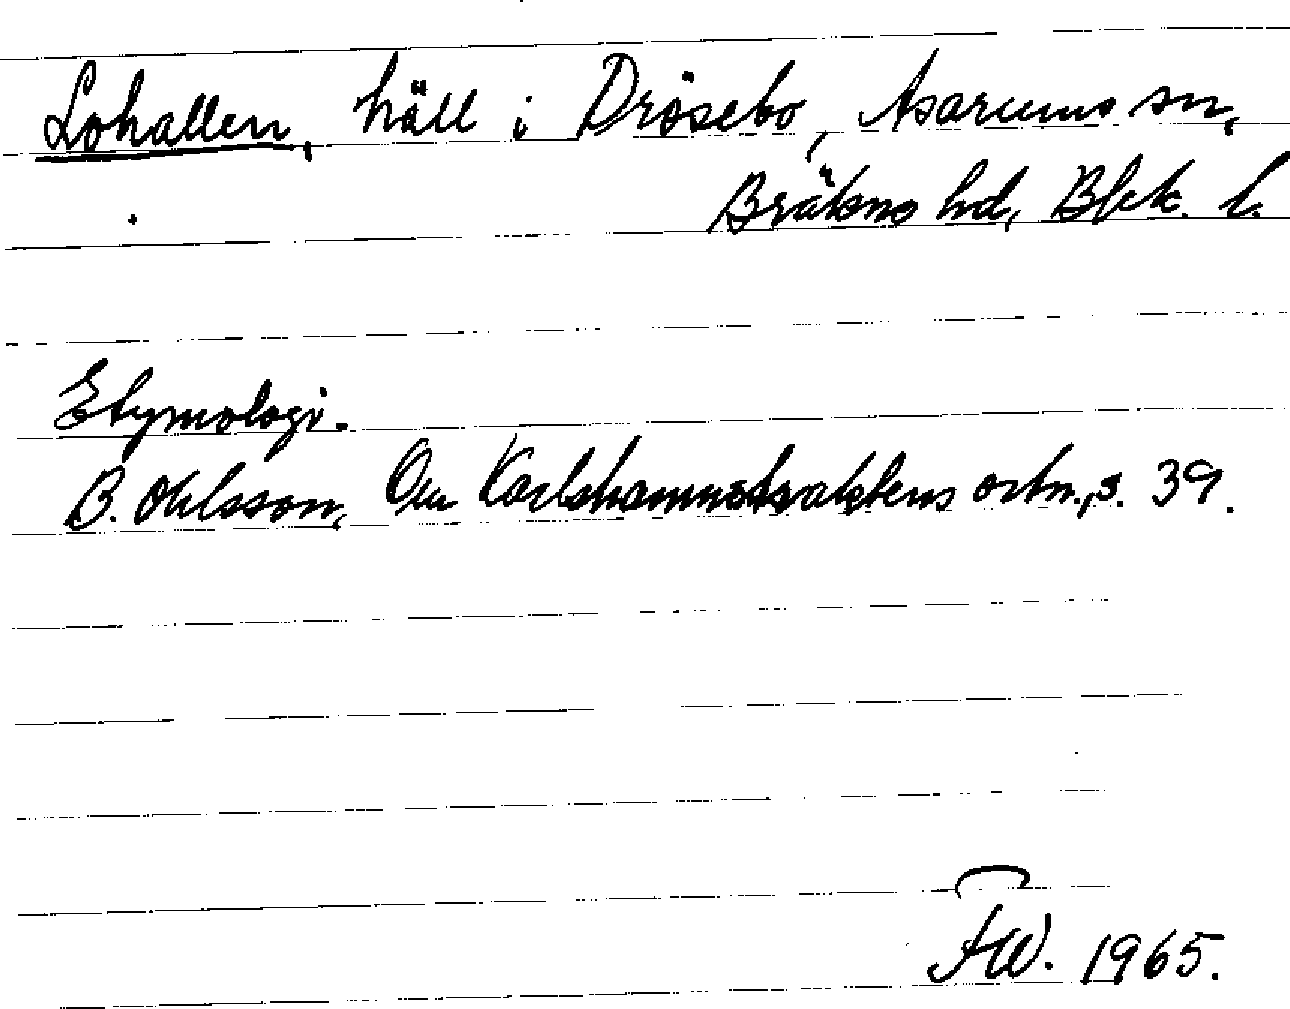 Lohallen, häll i Drösebo, Asarums sn,
Bräkne hd, Blek. l.
Etymologi.
B. Ohlsson, Om Karlshamnstraktens ortn., s. 39.
FW. 1965.